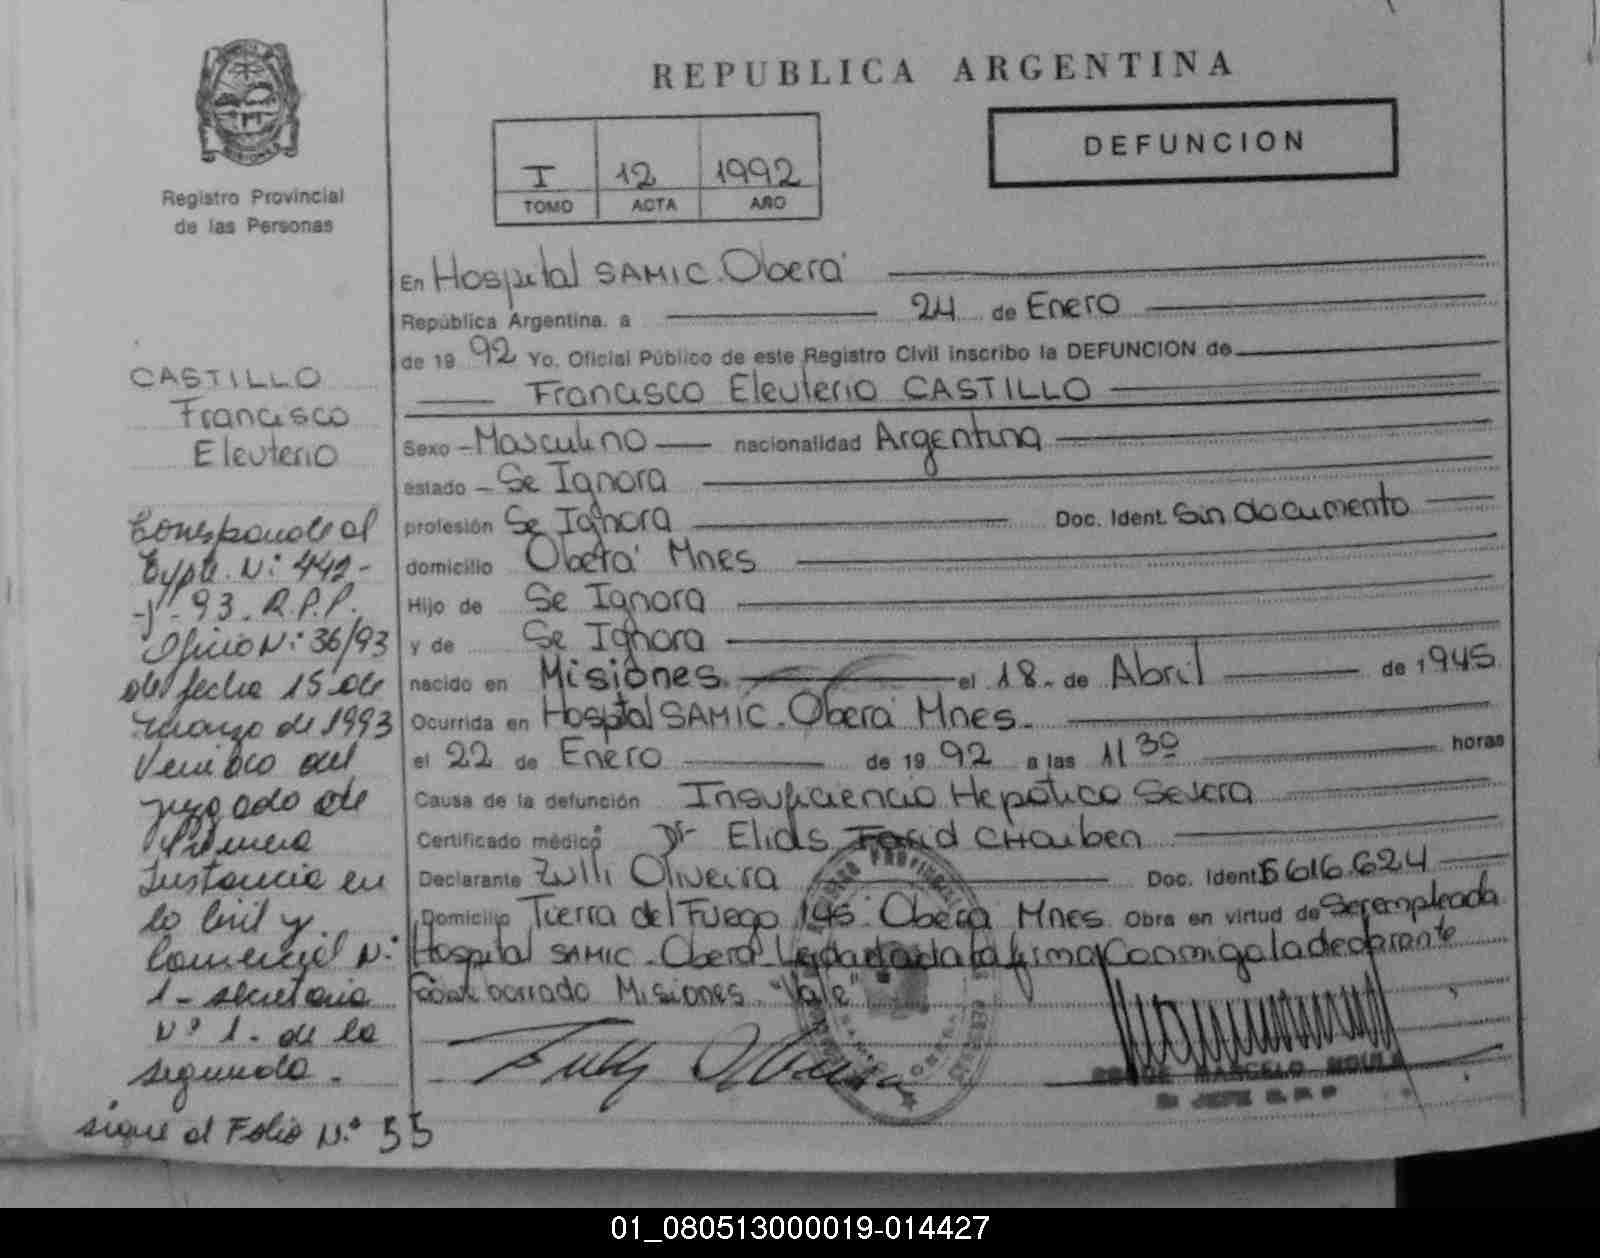 REPUBLICA ARGENTINA
DEFUNCION
I 12 1992
TOMO ACTA AÑO
MISIONES
Registro Provincial
de las Personas
CASTILLO
Francisco
Eleuterio
Corresponde al
Expte. N: 442-
-J-93. R.P.P.
Oficio N: 36/93
de fecha 15 de
marzo de 1993
Venido del
juzgado de
Primera
Instancia en
lo Civil y
Comercial N:
1 - secretaria
Nº 1 - de la
segunda.
sigue al Folio N.º 55
En Hospital SAMIC. Oberá
República Argentina. a 24 de Enero
de 19 92 Yo. Oficial Público de este Registro Civil inscribo la DEFUNCION de
Francisco Eleuterio CASTILLO
Sexo - Masculino nacionalidad Argentina
estado - Se Ignora
profesión Se Ignora Doc. Ident. Sin documento
domicilio Oberá Mnes
Hijo de Se Ignora
y de Se Ignora
nacido en Misiones el 18 de Abril de 1945
Ocurrida en Hospital SAMIC. Oberá Mnes.
el 22 de Enero de 19 92 a las 11 30 horas
Causa de la defunción Insuficiencia Hepática Severa
Certificado médico Dr Elias Farid CHaiben
Declarante Zulli Oliveira Doc. Ident. 5616.624
Domicilio Tierra del Fuego 145 Oberá Mnes. Obra en virtud de Ser empleada
Hospital SAMIC - Oberá - Leida el acta la firma Conmigo la declarante
borrado Misiones "Vale"
Zully Oliveira
MARCELO
JEFE R.P.P
01_080513000019-014427